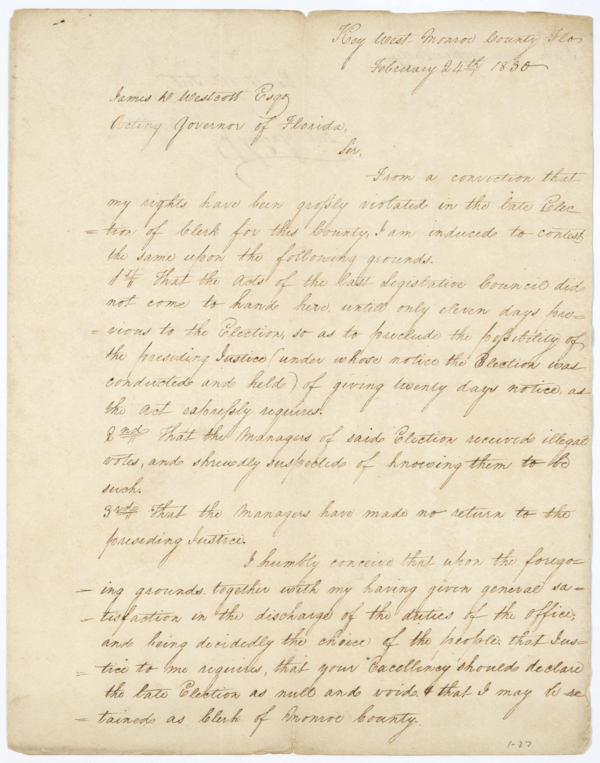 Key West Monroe County Flo
February 24th 1830
James D Westcott Esqr
Acting Governor of Florida,
Sir,
From a conviction that
my rights have been grossly violated in the late Elec
= tion of Clerk for this County, I am induced to contest
the same upon the following grounds.
1st That the Acts of the last Legislative Council did
not come to hand here, until only eleven days pre=
= vious to the Election, so as to preclude the possibility of
the presiding Justice (under whose notice the Election was
conducted and held) of giving twenty days notice, as
the act expressly requires.
2nd That the Managers of said Election received illegal
votes, and shrewdly suspected of knowing them to be
such.
3rd That the Managers have made no return to the
presiding Justice.
I humbly conceive that upon the forego=
- ing grounds together with my having given general sa=
- tisfaction in the discharge of the duties of the office,
and being decidedly the choice of the people, that Jus=
= tice to me requires, that your Excellency should declare
the late Election as null and void, & that I may be re
= tained as Clerk of Monroe County.
1-27